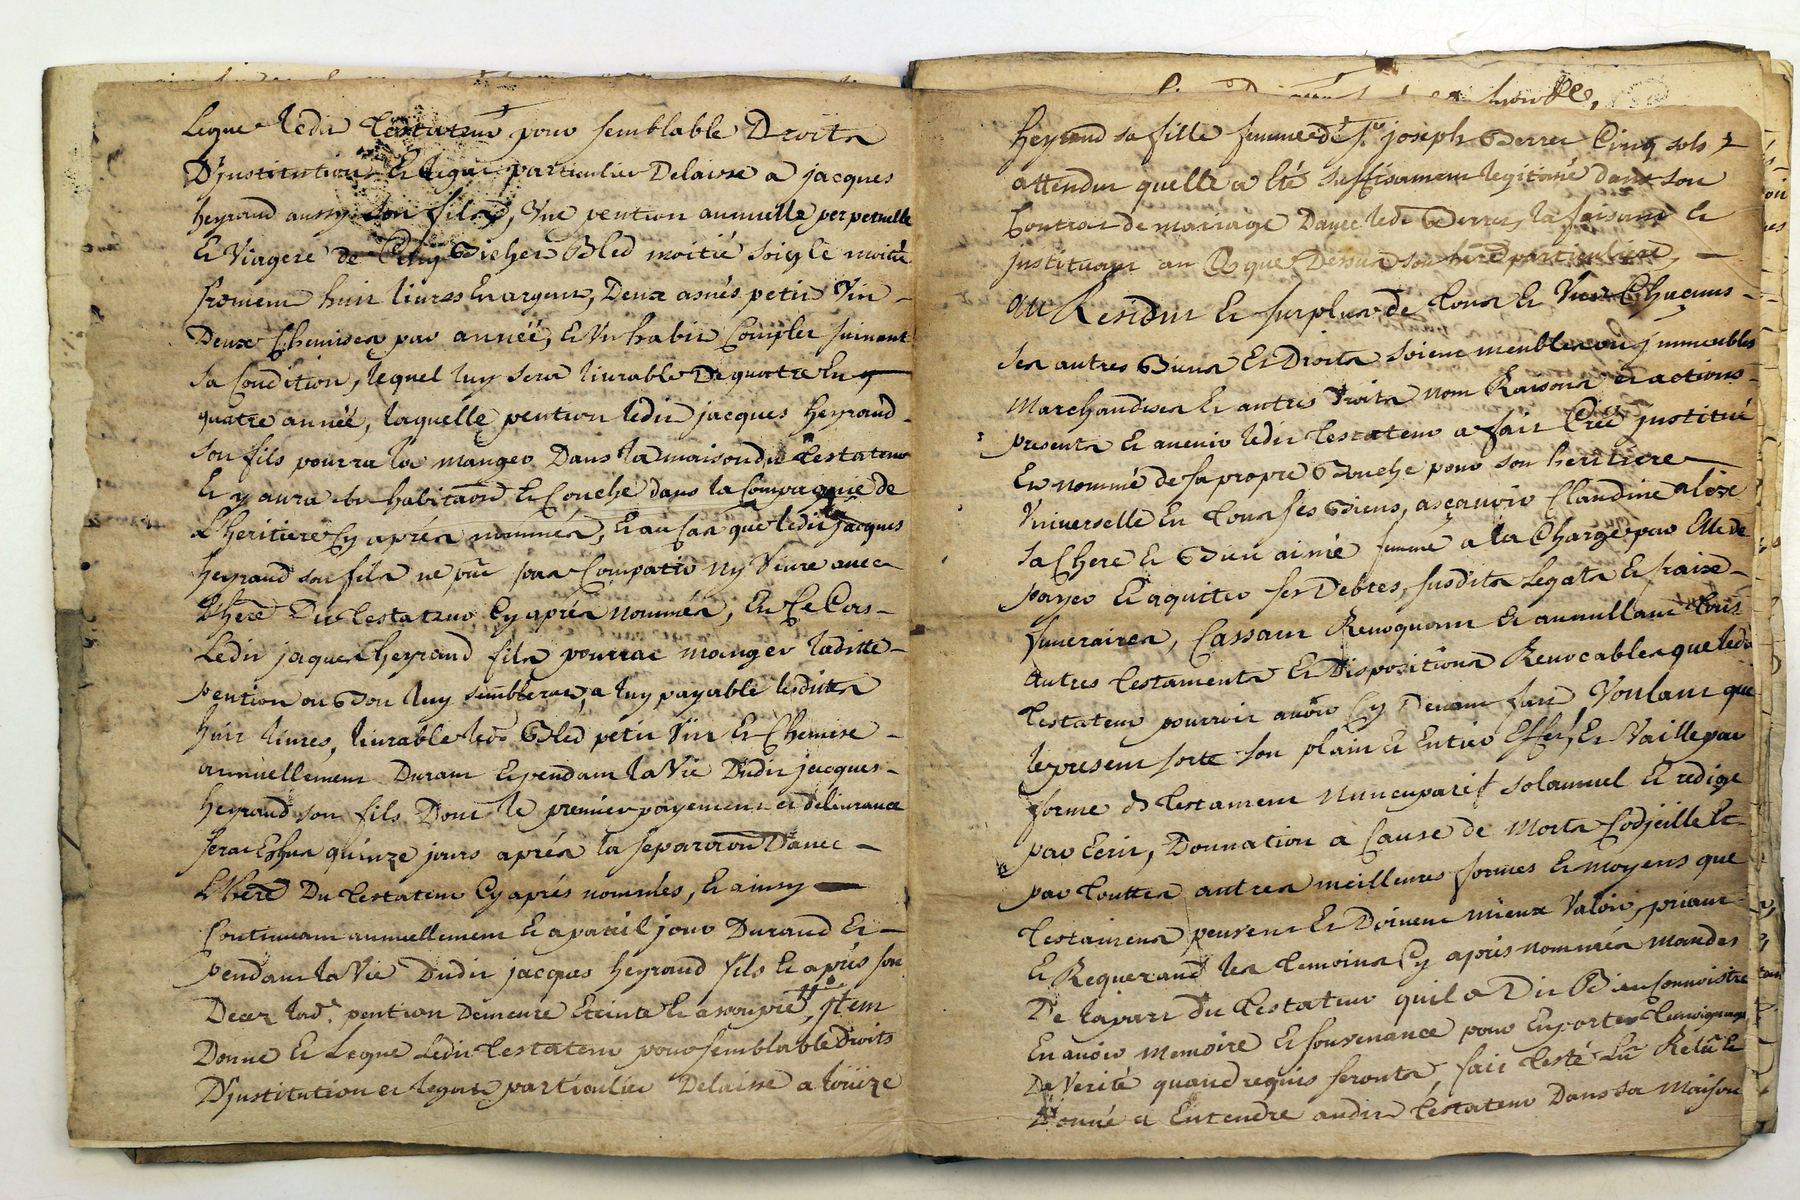 Legue ledit testateur pour semblable Droits
D'jnstitution et legat particulier Delaisse a jacques
heyraud aussy son fils, Une pention annuelle perpetuelle
Et Viagere de Cinq Bichet Bled moitié soigle moitié
froment huit livres En argent, Deux asnés petit Vin
Deux Chemises par année, Et Un habit Complet suivant
sa Condition, lequel luy sera livrable De quatre En
quatre année, laquelle pention ledit jacques heyraud
son fils pourra la manger Dans la maison du testateur
Et y aura son habitaōn Et Couche dans la Compagnie de
L'heritiere Cy aprés nommée, Et au Cas que ledit jacques
heyraud son fils ne pût Compatir ny Vivre avec
L'here Du testateur Cy aprés nommée, En Ce Cas
Ledit jaques heyraud fils pourrat manger laditte
pention ou Bon luy semblerat, a luy payable lesdittes
huit livres, livrable led. Bled petit Vin Et Chemise
annuellement Durant Et pendant la Vie Dudit jacques
heyraud son fils Dont le premier payement et delivrance
serat Eschus quinze jours aprés la separation D'avec
L'here Du testateur Cy aprés nommés, Et ainsy
Continuant annuellement Et a pareil jour Durand Et
pendant la Vie Dudit jacques heyraud fils Et aprés son
Decez lad. pention Demeure Eteinte Et assoupie, jtem
Donne Et Legue Ledit testateur pour semblable droits
D'jnstitution et legat particulier Delaisse a loüize
heyraud sa fille femme de Sr. joseph Berrer Cinq sols
attendu quelle a Eté suffisament legitimé dans son
Contrat de mariage D'avec led. Berrer, la faisant Et
jnstituant au Ce que Dessus son here particuliere,
Au Residu Et surplus de tous Et Uns Chacuns
ses autres Biens Et Droits soient meubles ou jmmeubles
Marchandises Et autres Droits nom Raisons et actions
presents Et avenir ledit testateur a fait Creé jnstitué
Et nommé de sa propre Bouche pour son heritiere
Universelle En tous ses Biens, asçavoir Claudine alexe
sa Chere Et Bien aimée femme a la Charge par Elle de
payer Et aquitter ses Debtes, susdits Legats Et fraix
funeraires, Cassant Revoquant Et annullant tous
autres testaments Et Dispositions Revocables que ledit
testateur pourroit avoir Cy Devant fait, Voulant que
le present sorte son plain Et Entier Effet, Et Vaille par
forme de testament nuncupatif solamnel Et redigé
par Ecrit, Donnation a Cause de Morts Codjcille Et
par touttes autres meilleures formes Et moyens que
testaments peuvent Et Doivent mieux Valoir, priant
Et Requerand les temoins Cy aprés nommés mandés
De la part du testateur quil a Dit Bien Connoistre
En avoir memoire Et souvenance pour En porter temoignage
De Verité quand requis seronts, fait testé Lû Relû Et
Donné a Entendre audit testateur Dans sa maison